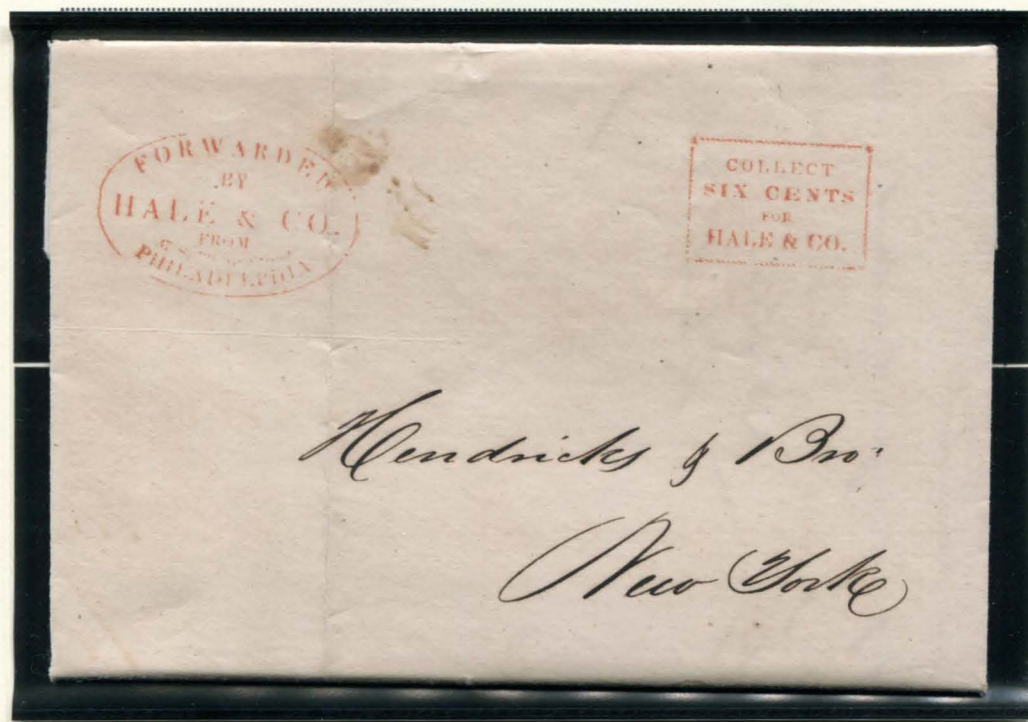 FORWARDED
BY
HALE & CO.
FROM
PHILADELPHIA
COLLECT
SIX CENTS
FOR
HALE & CO.
Hendricks & Bro.
New York